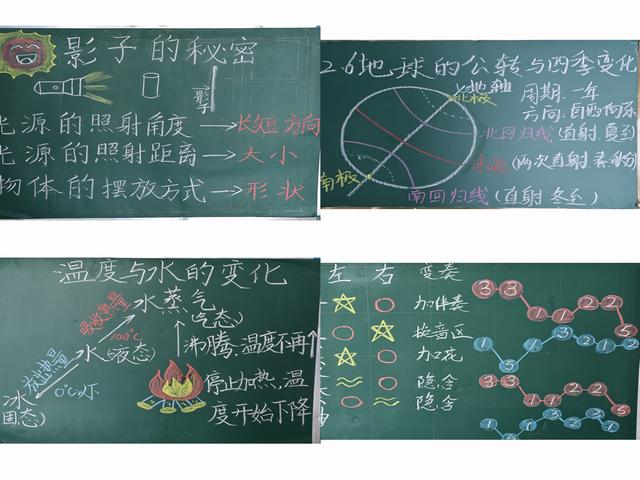 影子的秘密
影子
光源的照射角度→长短方向
光源的照射距离→大小
物体的摆放方式→形状
2.6地球的公转与四季变化
地轴
北极
周期:一年
方向:自西向东
北回归线(直射夏至)
赤道(两次直射春秋分)
南极
南回归线(直射冬至)
温度与水的变化
吸收热量
水蒸气
(气态)
100℃
水(液态)
沸腾,温度不再↑
放出热量
0℃以下
冰
固态)
停止加热,温
度开始下降
左 右 变奏
加伴奏
换音区
加花
隐含
隐含
3 3 1 1 2 2 5
1 5 1 3 2 1 2
3 3 1 1 2 2 5